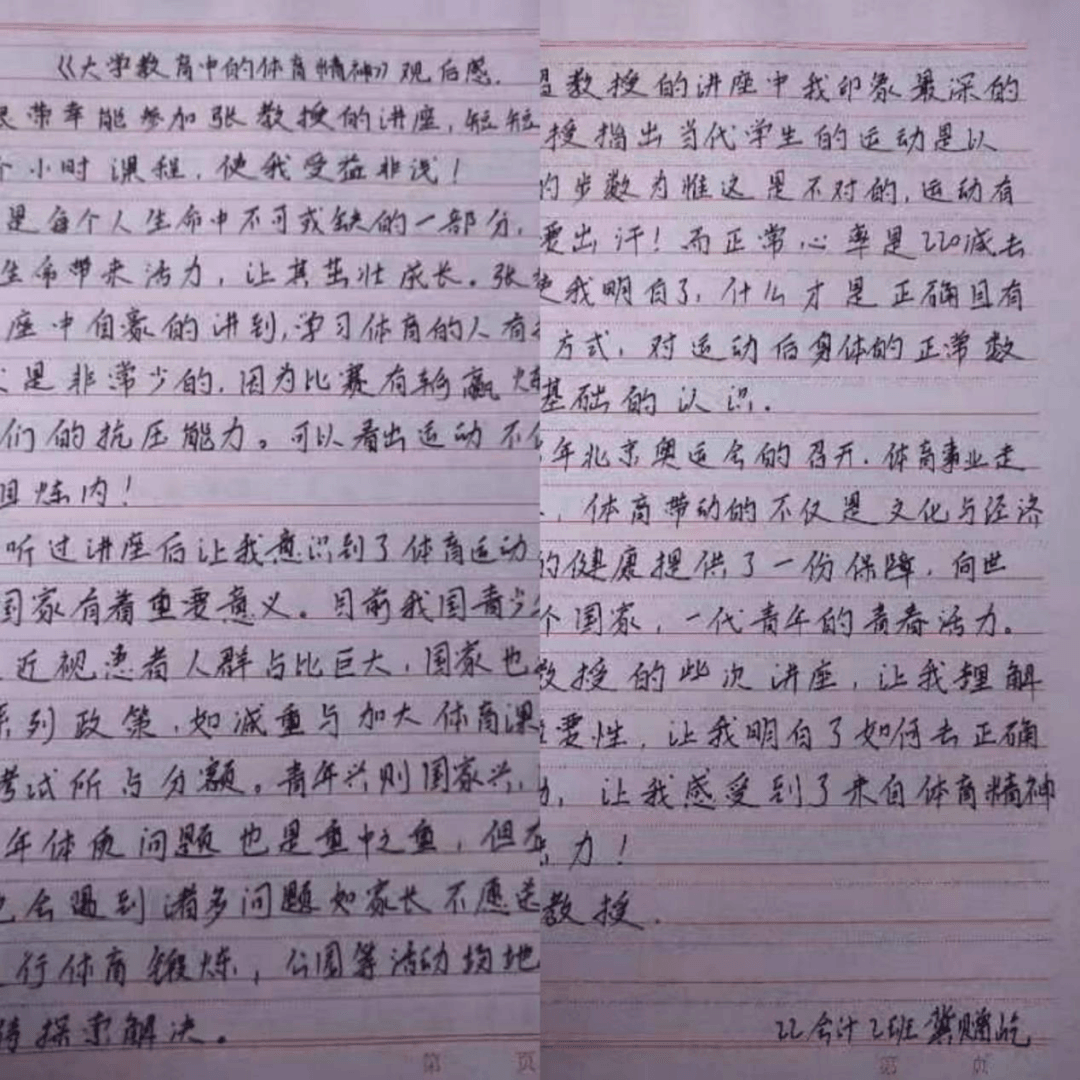 《大学教育中的体育精神》观后感.
很荣幸能参加张教授的讲座,短短
个小时课程,使我受益非浅!
是每个人生命中不可或缺的一部分,
生命带来活力,让其茁壮成长。张
座中自豪的讲到,学习体育的人有
是非常少的,因为比赛有输赢
们的抗压能力。可以看出运动不
且炼内!
听过讲座后让我意识到了体育运动
国家有着重要意义。目前我国青少
近视患者人群占比巨大,国家也
系列政策,如减重与加大体育课
考试所占分额。青年兴则国家兴,
年体质问题也是重中之重,但
也会遇到诸多问题如家长不愿送
行体育锻炼,公园等活动场地
待探索解决。
第 页
教授的讲座中我印象最深的
授指出当代学生的运动是以
的步数为准这是不对的,运动有
要出汗!而正常心率是220减去
使我明白了,什么才是正确且有
方式,对运动后身体的正常数
基础的认识.
年北京奥运会的召开.体育事业走
,体育带动的不仅是文化与经济
的健康提供了一份保障,向世
个国家,一代青年的青春活力。
教授的此次讲座,让我理解
要性,让我明白了如何去正确
动,让我感受到了来自体育精神
力!
教授.
22会计2班
第 页